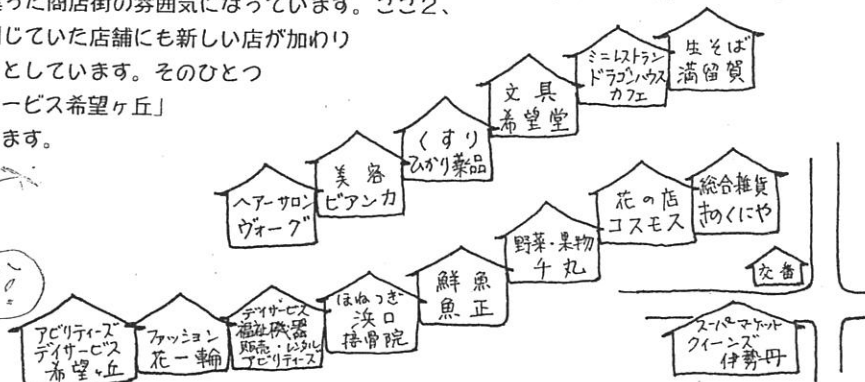 った商店街の雰囲気になっています。ここ2、
じていた店舗にも新しい店が加わり
としています。そのひとつ
ービス希望ヶ丘」
ます。
生そば
満留賀
ミニレストラン
ドラゴンハウス
カフェ
文具
希望堂
くすり
ひかり薬品
美容
ビアンカ
ヘアーサロン
ヴォーグ
総合雑貨
きのくにや
花の店
コスモス
野菜・果物
千丸
鮮魚
魚正
ほねつぎ
浜口
接骨院
デイサービス
福祉機器
販売・レンタル
アビリティーズ
ファッション
花一輪
アビリティーズ
デイサービス
希望ヶ丘
交番
スーパーマーケット
クイーンズ
伊勢丹